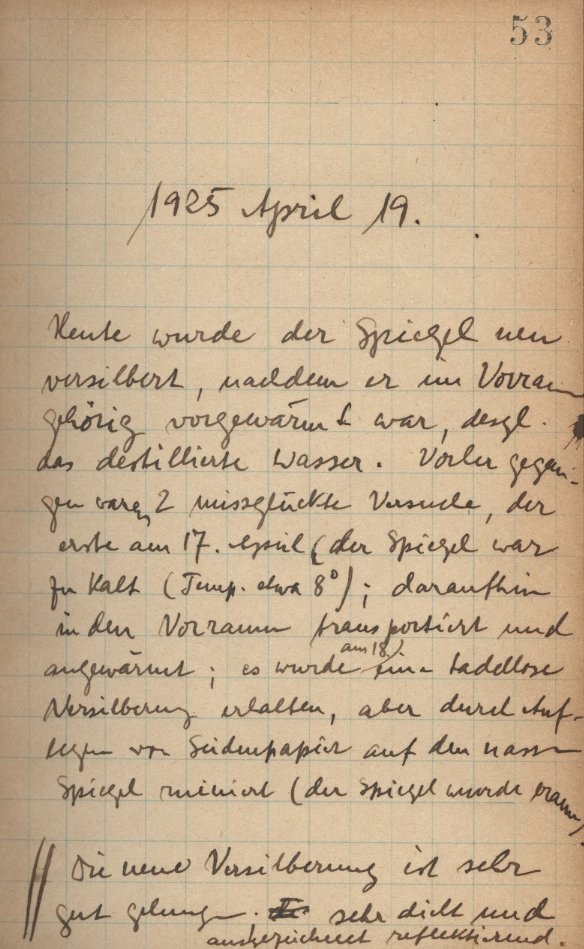 53
1925 April 19.
Heute wurde der Spiegel neu
versilbert, nachdem er im Vorraum
gehörig vorgewärmt war, desgl.
das destillierte Wasser. Vorher gegan-
gen waren 2 missglückte Versuche, der
erste am 17. April (der Spiegel war
zu kalt (Temp. etwa 8°); daraufhin
in den Vorraum transportiert und
angewärmt; es wurde am 18. eine tadellose
Versilberung erhalten, aber durch Auf-
legen von Seidenpapier auf den nassen
Spiegel ruiniert (der Spiegel wurde
Die neue Versilberung ist sehr
gut gelungen. sehr dicht und
ausgezeichnet reflektierend.